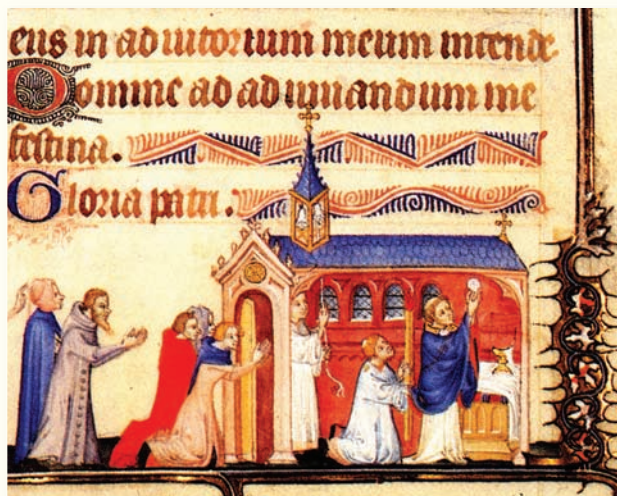 eus in adiutorium meum intende.
Domine ad adiuuandum me
festina.
Gloria patri.